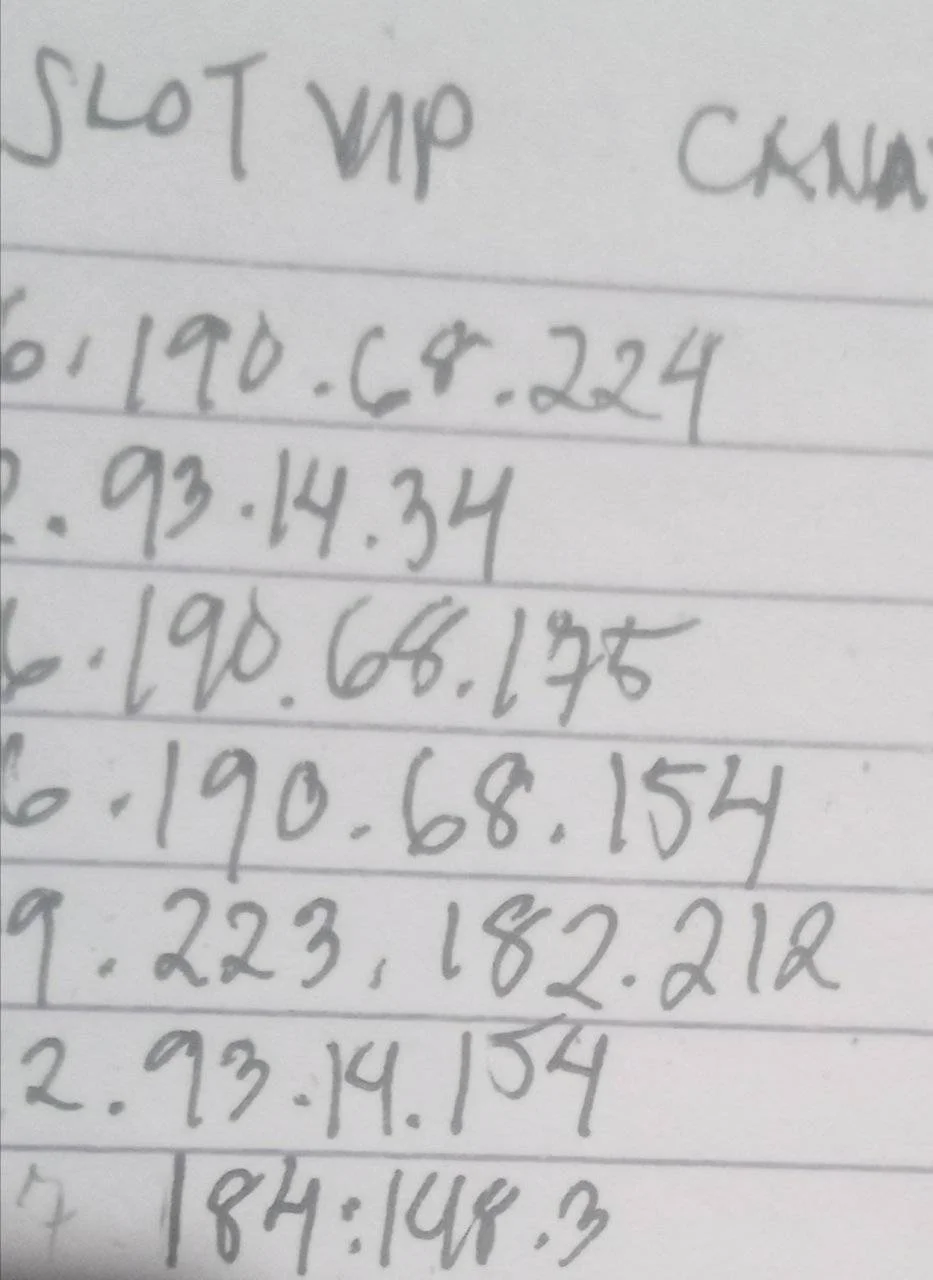 SLOT VIP CANA
6.190.68.224
2.93.14.34
6.190.68.175
6.190.68.154
9.223,182.212
2.93.14.154
7 184:148.3